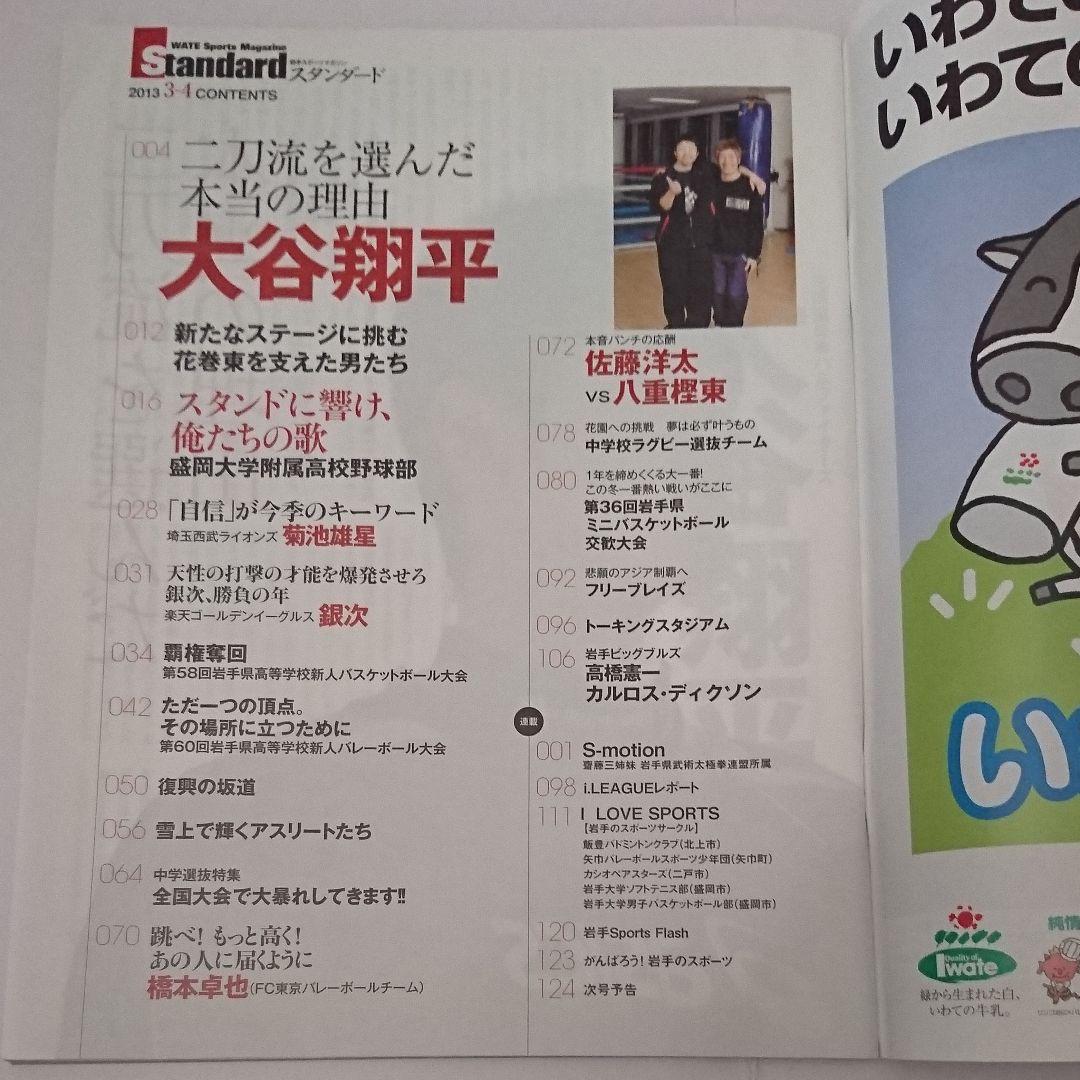 IWATE Sports Magazine
Standard 岩手スポーツマガジン スタンダード
2013 3-4 CONTENTS
004 二刀流を選んだ
本当の理由
大谷翔平
012 新たなステージに挑む
花巻東を支えた男たち
016 スタンドに響け、
俺たちの歌
盛岡大学附属高校野球部
028 「自信」が今季のキーワード
埼玉西武ライオンズ 菊池雄星
031 天性の打撃の才能を爆発させろ
銀次、勝負の年
楽天ゴールデンイーグルス 銀次
034 覇権奪回
第58回岩手県高等学校新人バスケットボール大会
042 ただ一つの頂点。
その場所に立つために
第60回岩手県高等学校新人バレーボール大会
050 復興の坂道
056 雪上で輝くアスリートたち
064 中学選抜特集
全国大会で大暴れしてきます!!
070 跳べ! もっと高く!
あの人に届くように
橋本卓也(FC東京バレーボールチーム)
072 本音パンチの応酬
佐藤洋太
VS 八重樫東
078 花園への挑戦 夢は必ず叶うもの
中学校ラグビー選抜チーム
080 1年を締めくくる大一番!
この冬一番熱い戦いがここに
第36回岩手県
ミニバスケットボール
交歓大会
092 悲願のアジア制覇へ
フリーブレイズ
096 トーキングスタジアム
106 岩手ビッグブルズ
高橋憲一
カルロス・ディクソン
連載
001 S-motion
齋藤三姉妹 岩手県武術太極拳連盟所属
098 i.LEAGUEレポート
111 I LOVE SPORTS
【岩手のスポーツサークル】
飯豊バドミントンクラブ(北上市)
矢巾バレーボールスポーツ少年団(矢巾町)
カシオペアスターズ(二戸市)
岩手大学ソフトテニス部(盛岡市)
岩手大学男子バスケットボール部(盛岡市)
120 岩手Sports Flash
123 がんばろう! 岩手のスポーツ
124 次号予告
いわての
いわての
い
Quality of
Iwate
緑から生まれた白、
いわての牛乳。
純情